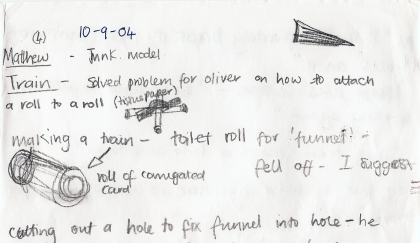 (4) 10-9-04
Mathew - Junk. model
Train - Solved problem for oliver on how to attach
a roll to a roll (tissue paper)
making a train - toilet roll for 'funnel' -
fell off - I suggest
roll of corrugated
card
cutting out a hole to fix funnel into hole - he